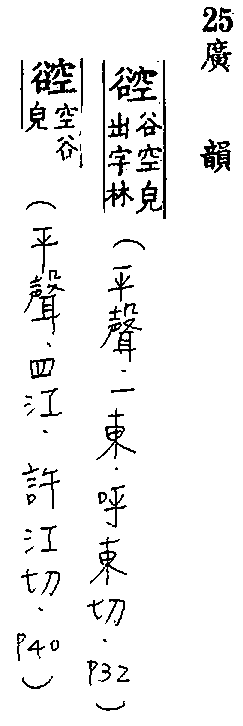 25廣韻
谾谷空皃出字林(平聲.一東.呼東切.P32)
谾空谷皃(平聲.四江.許江切.P40)